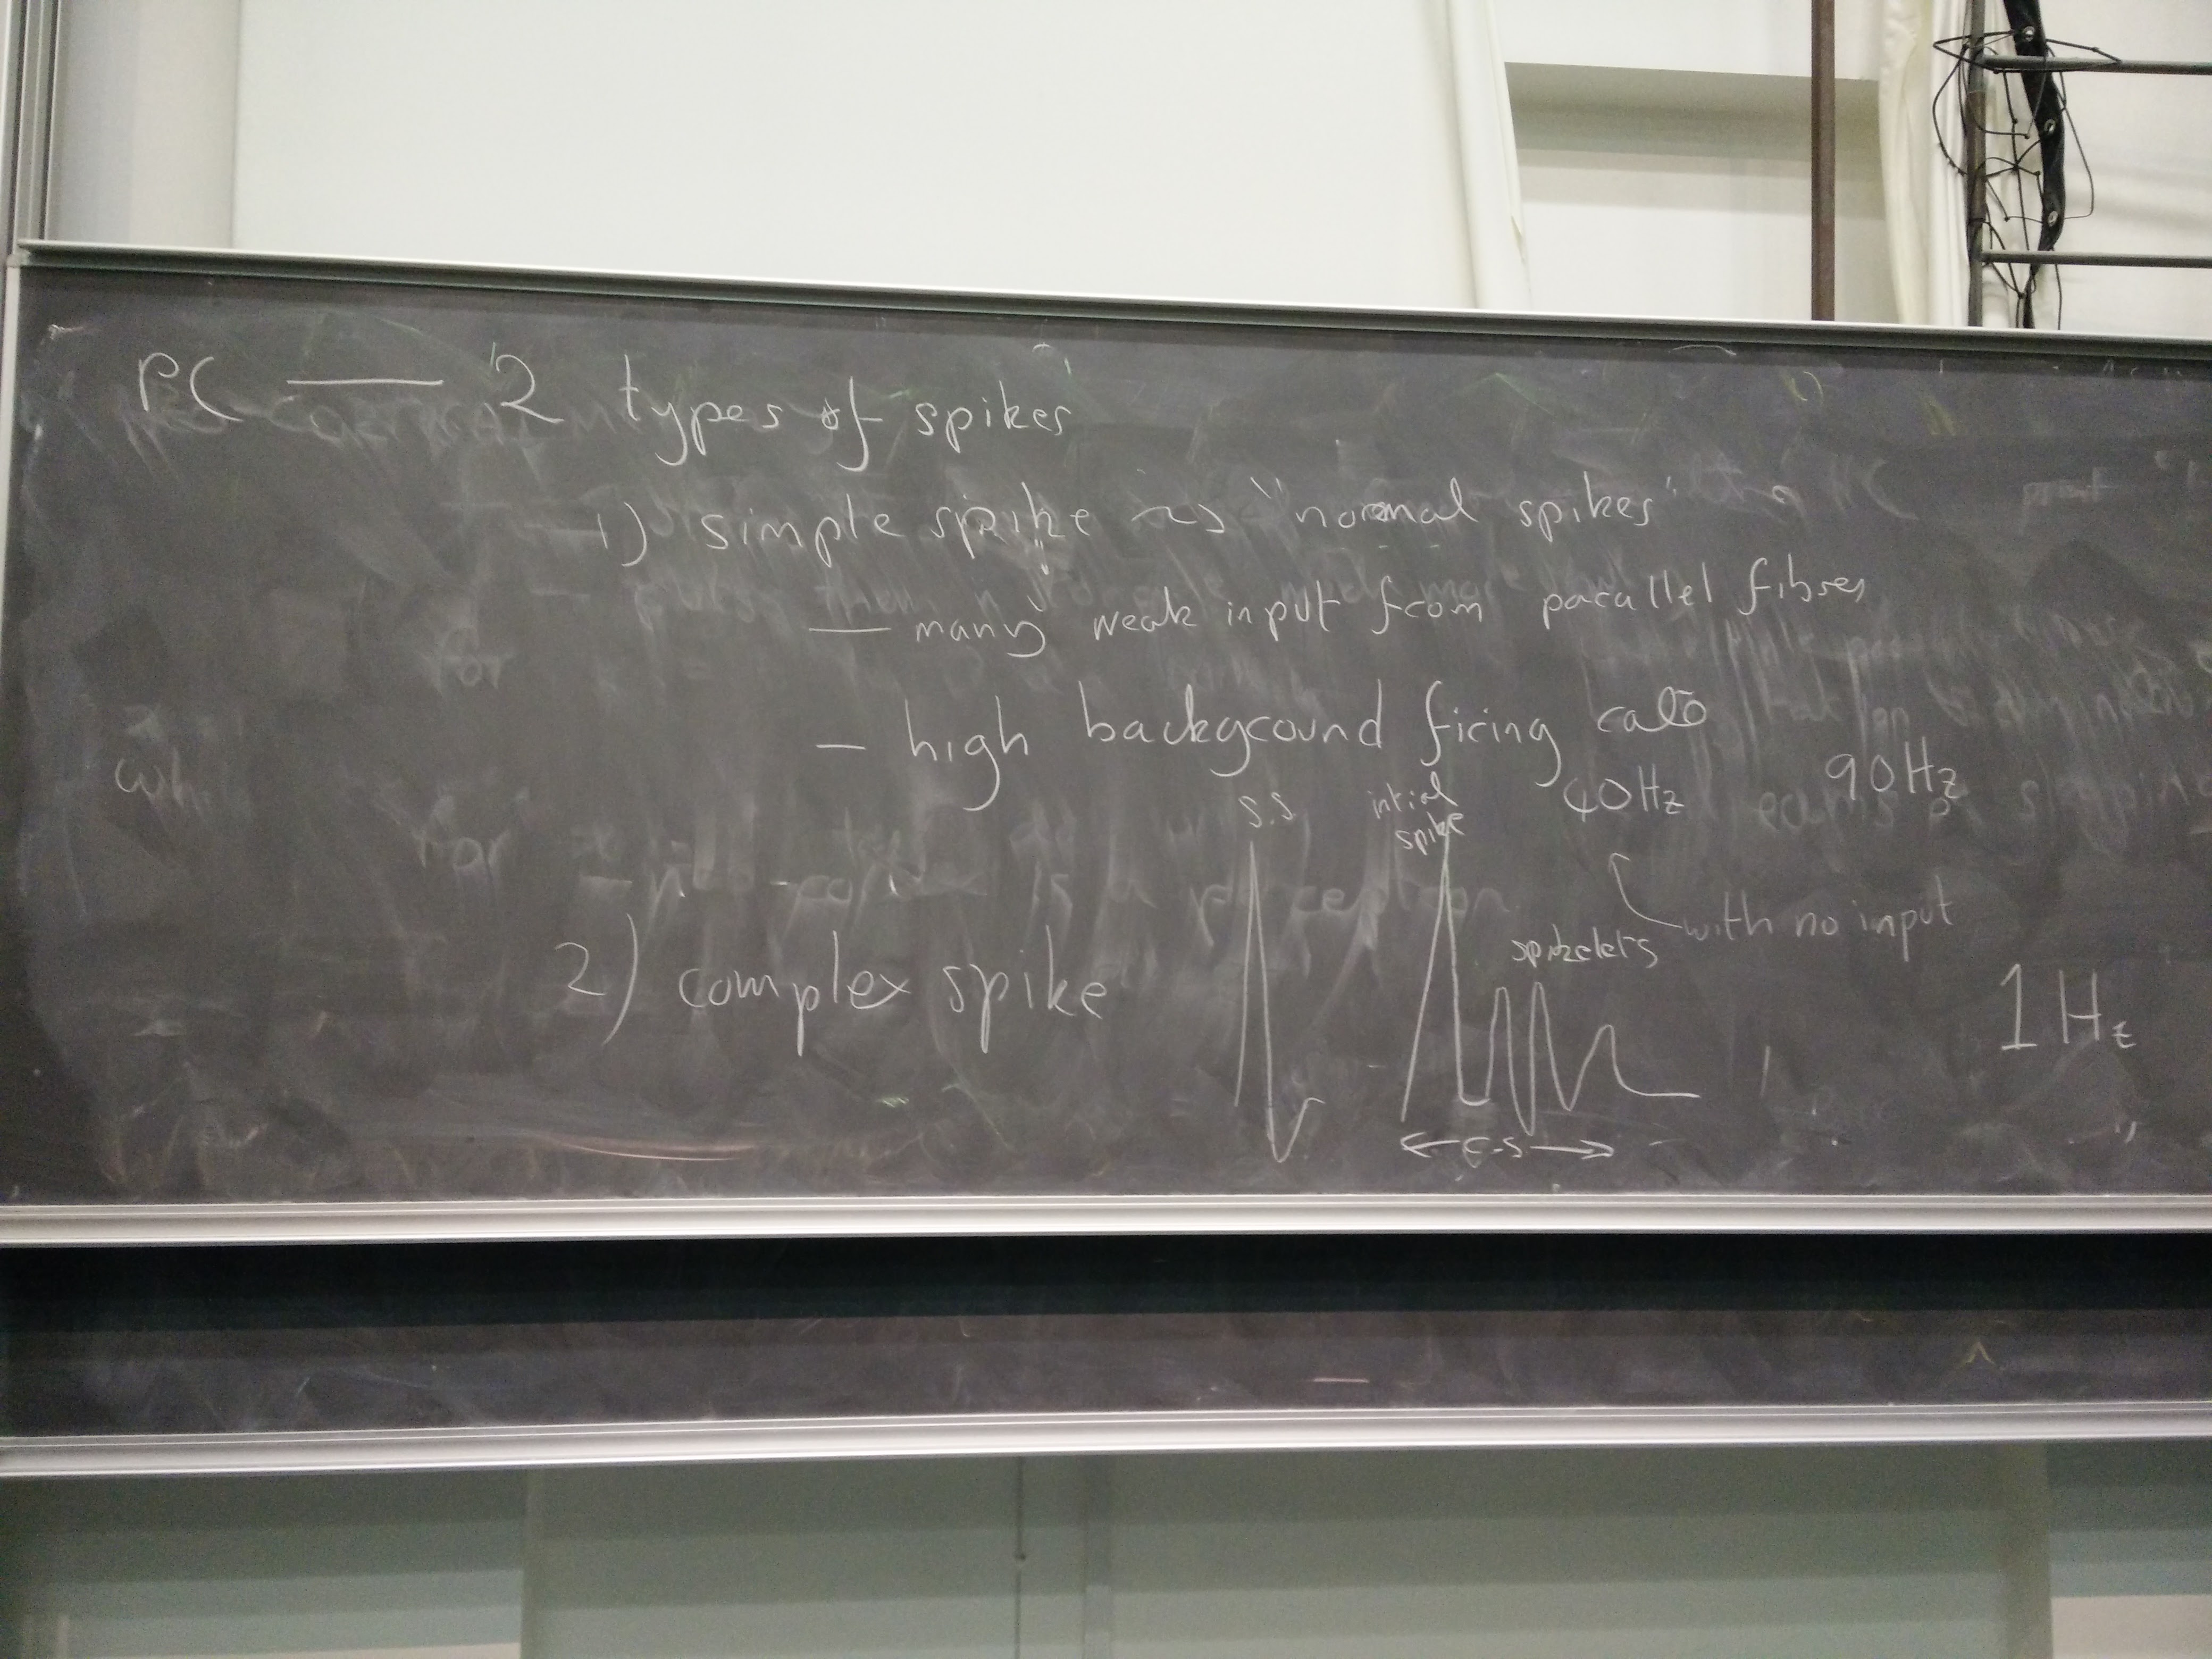 PC — 2 types of spikes
1) simple spike ~> "normal spikes"
— many weak input from parallel fibres
— high background firing rate
40Hz 90Hz
S.S initial spike
with no input
spikelets
2) complex spike
1Hz
← C.S →